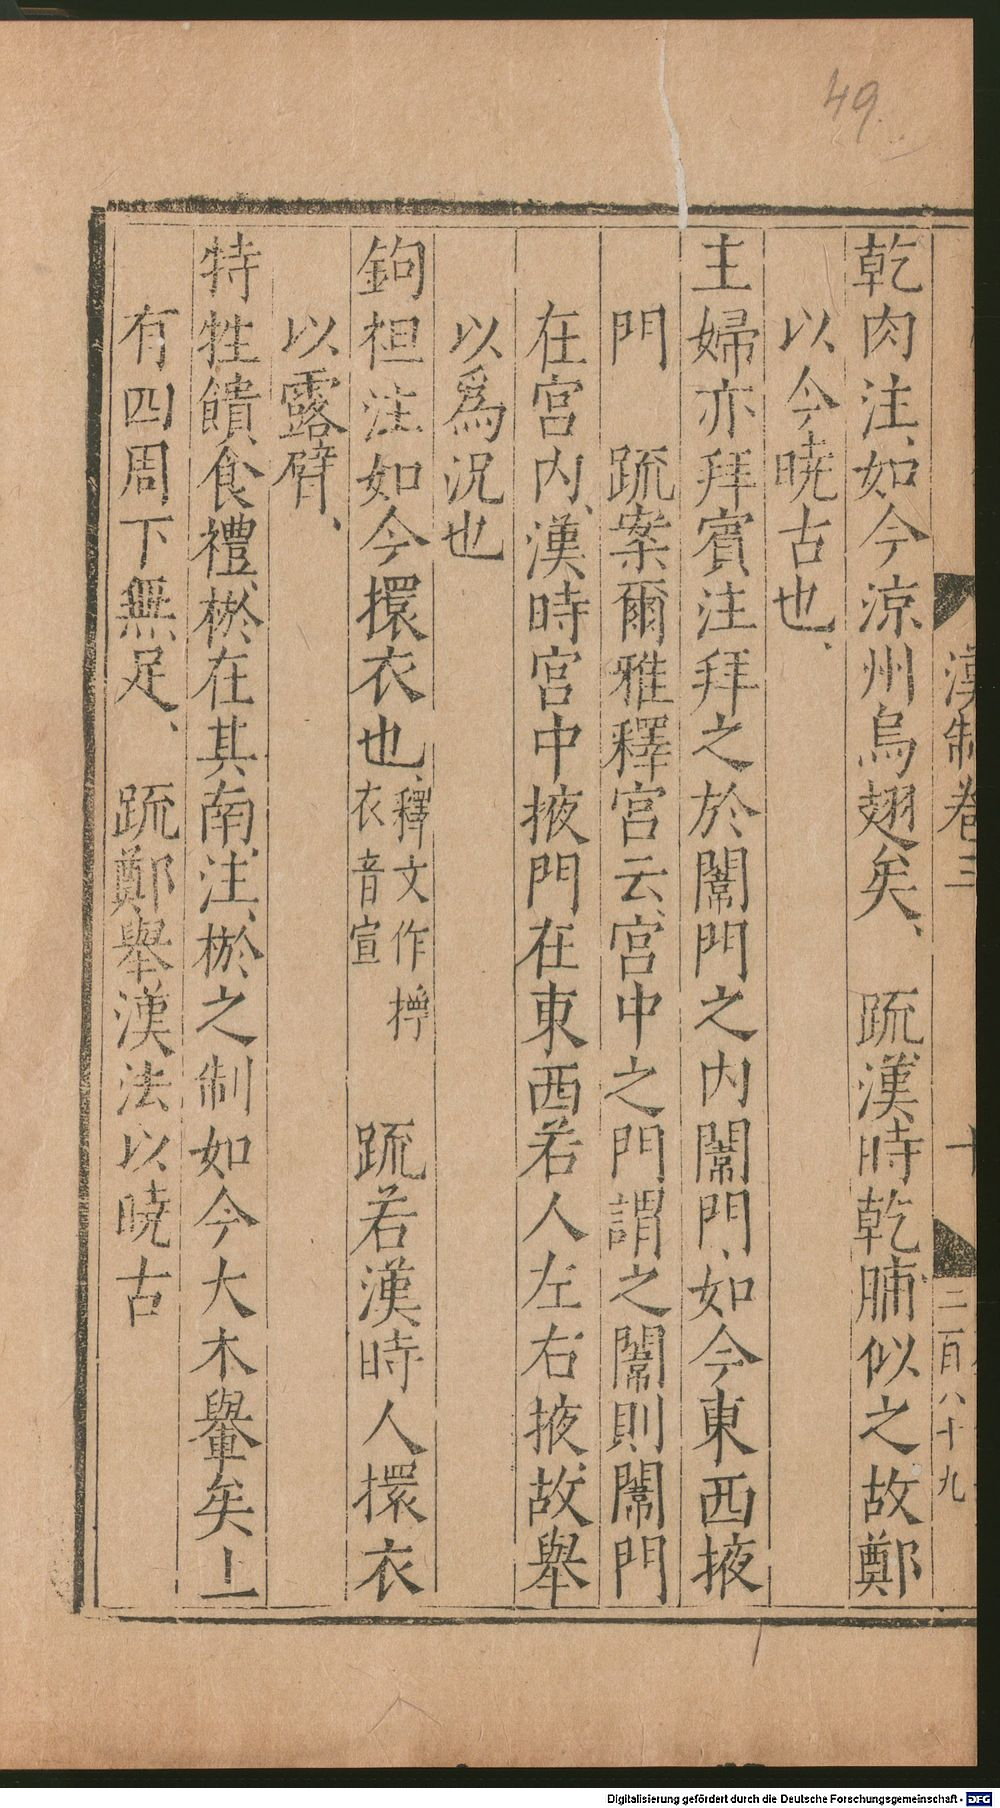 49
漢制卷三
十
二百八十九
乾肉注、如今涼州烏翅矣、　疏漢時乾脯似之故鄭
以今曉古也、
主婦亦拜賓注拜之於闈門之內闈門、如今東西掖
門　疏案爾雅釋宮云、宮中之門謂之闈則闈門
在宮內、漢時宮中掖門在東西若人左右掖、故舉
以爲況也
鉤袒注、如今擐衣也、釋文作揎
衣音宣　疏若漢時人擐衣
以露臂、
特牲饋食禮、棜在其南注、棜之制如今大木轝矣上
有四周下無足、　疏鄭舉漢法以曉古
Digitalisierung gefördert durch die Deutsche Forschungsgemeinschaft - DFG